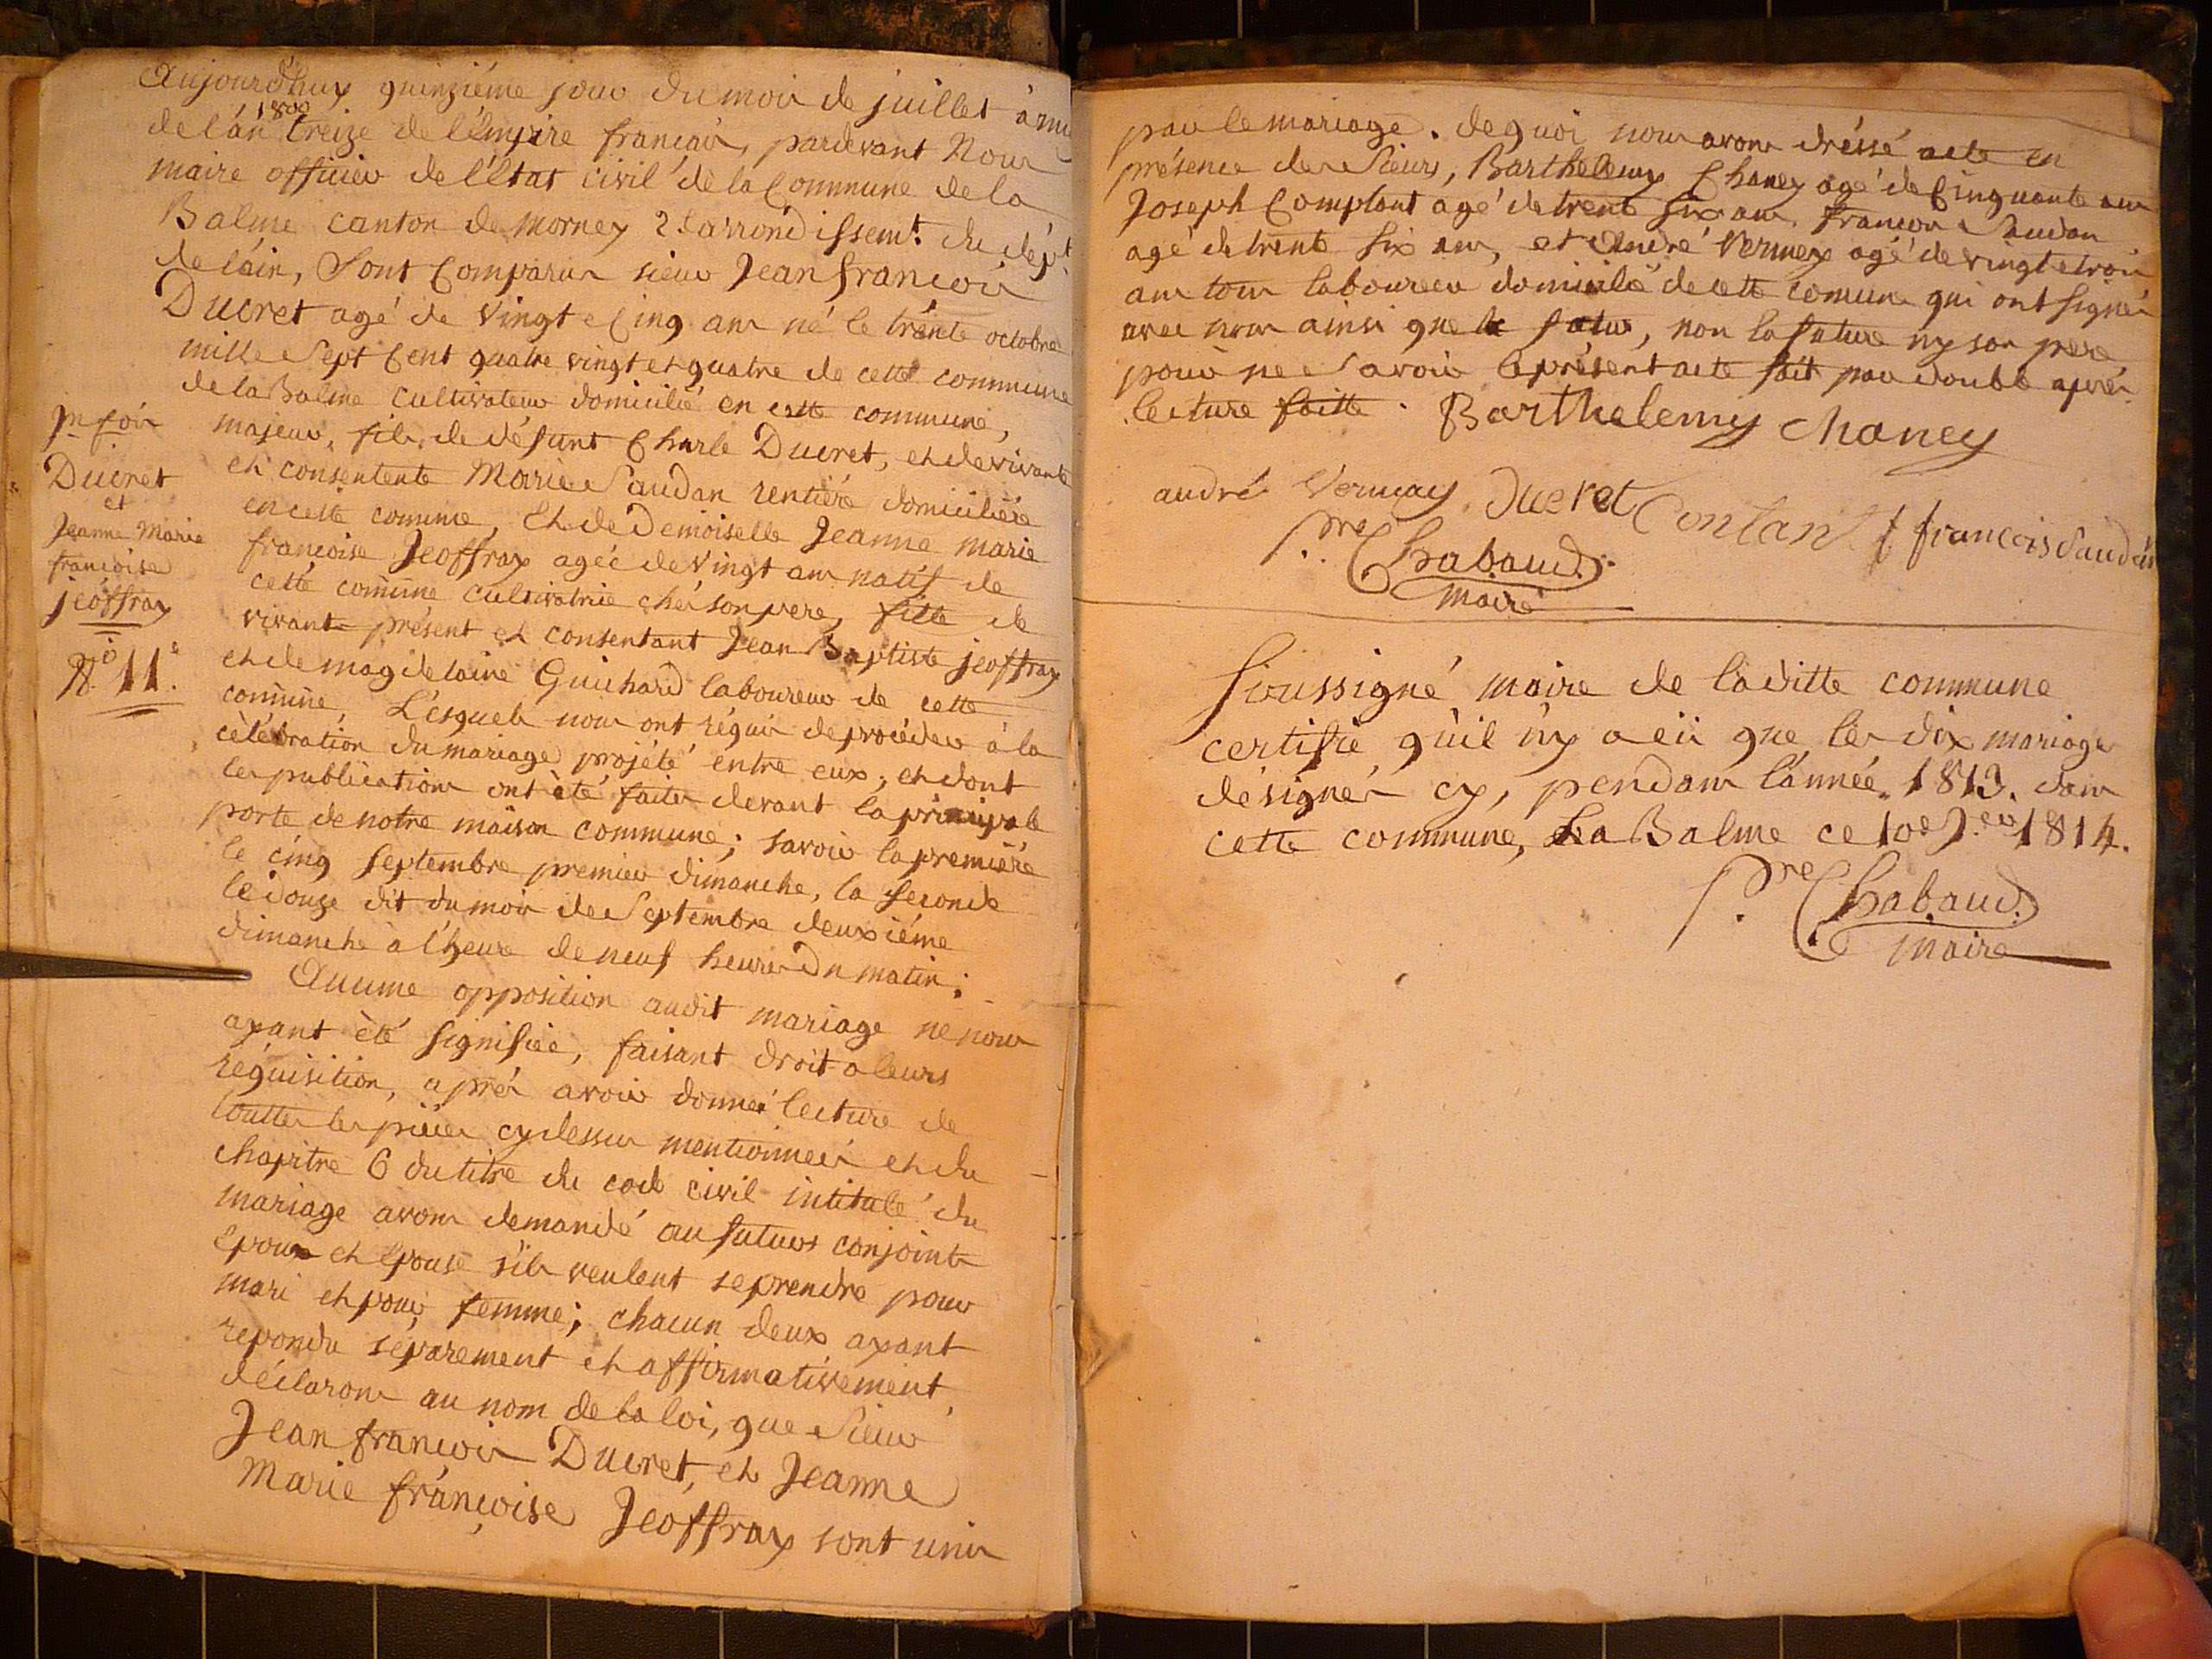 Aujourd'huy quinziéme jour du mois de juillet à mi
1800
de l'án treize de l'émpire francais, pardevant Nous
maire officier de l'Etat civil de la Commune de la
Balme canton de mornay 2. d'arrondissemt. du dépt.
de l'ain, Sont Comparus sieur Jean francois
Ducret agé de Vingt e Cinq ans né le trente octobre
mille Sept Cent quatre vingt et quatre de cette commune
de la Balme cultivateur domicilié en cette commune,
majeur, fils de défunt Charle Ducret, et de vivante
et consentente Marie Saudan rentiére domiciliéé
en cette comune, Et de Demoiselle Jeanne marie
francoise Jeoffray agéé de Vingt ans natif de
cette comune cultivatrice chés son pere, fille de
vivant présent et consentant Jean Baptiste jeoffray
et de magdelaine Guichard laboureur de cette
comune, Lésquels nous ont réquis de procéder à la
célébration du mariage projété entre eux; et dont
les publications ont été faites devant la principale
porte de notre maison commune; savoir la premiére
le cinq Septembre premier dimanche, la seconde
le douze dit du mois de Septembre deuxiéme
dimanche à l'heure de neuf heures du matin;
Aucune opposition audit mariage ne nous
ayant été signifiéé, faisant droit a leurs
réquisition, aprés avoir donner lecture de
toutes les piéces cy dessus mentionneés et du
chapitre 6 du titre du code civil intitulé du
mariage avons demandé au futurs conjoints
époux et épouse s'ils veulent se prendre pour
mari et pour femme; chacun deux ayant
repondu séparement et affirmativement,
déclarons au nom de la loi, que Sieur
Jean francois Ducret, et Jeanne
Marie françoise Jeoffray sont unis
Jn fois
Ducret
et
Jeanne Marie
francoise
jeoffray
No. 11.
par le mariage. de quoi nous avons dréssé acte en
présence des Sieurs, Barthelemy Chaney agé de Cinquante ans
Joseph Complant agé de trente six ans francois Saudan
agé de trente six ans, et André Vernay agé de vingt etrois
ans tous laboureur domicilié de cette comune qui ont signés
avec nous ainsi que le futur, non la future ny son pere
pour ne savoir le présent acte fait par double aprés
lecture faitte. Barthelemy Chaney
andré Vernay Ducret Contant françois Saudan
Pre Chabaud
maire
Soussigné maire de la ditte commune
certifie qu'il n'y a eü que les dix mariages
désignés cy, pendans l'année 1813. dans
cette commune, La Balme ce 10e J.er 1814.
Pre Chabaud
maire